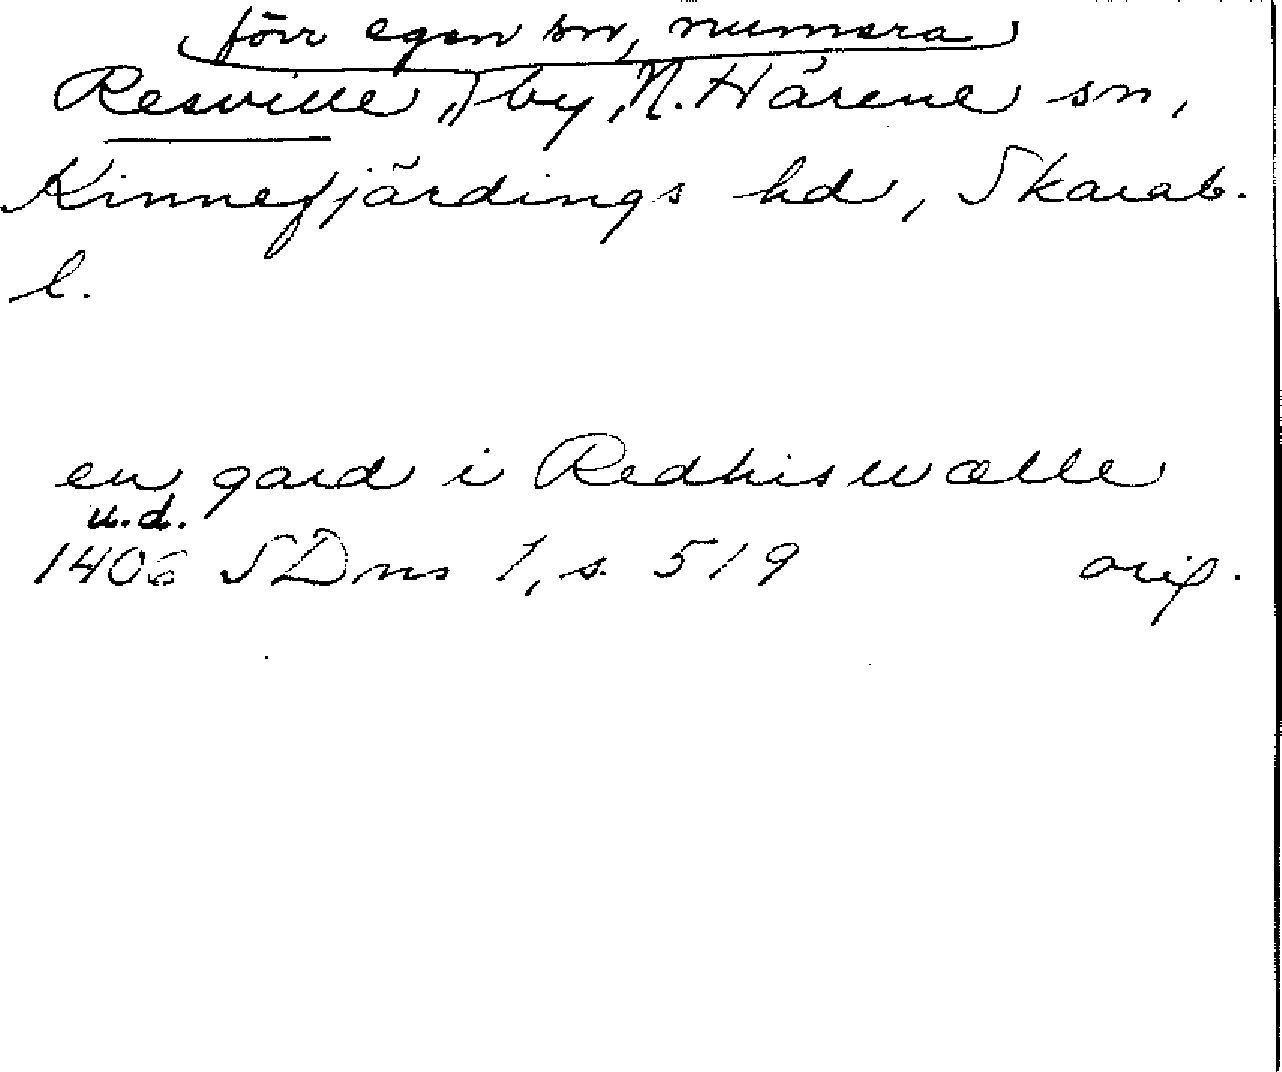 förr egen sn, numera
Resville, by, N. Härene sn,
Kinnefjärdings hd, Skarab.
l.
en gard i Redhiswælle
u.d.
1406 SDns 1, s. 519 orig.